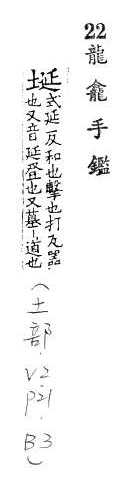 22 龍龕手鑑
埏式延反和也擊也打瓦器
也又音延登也又墓｜道也
(土部.V2.P21.B3)